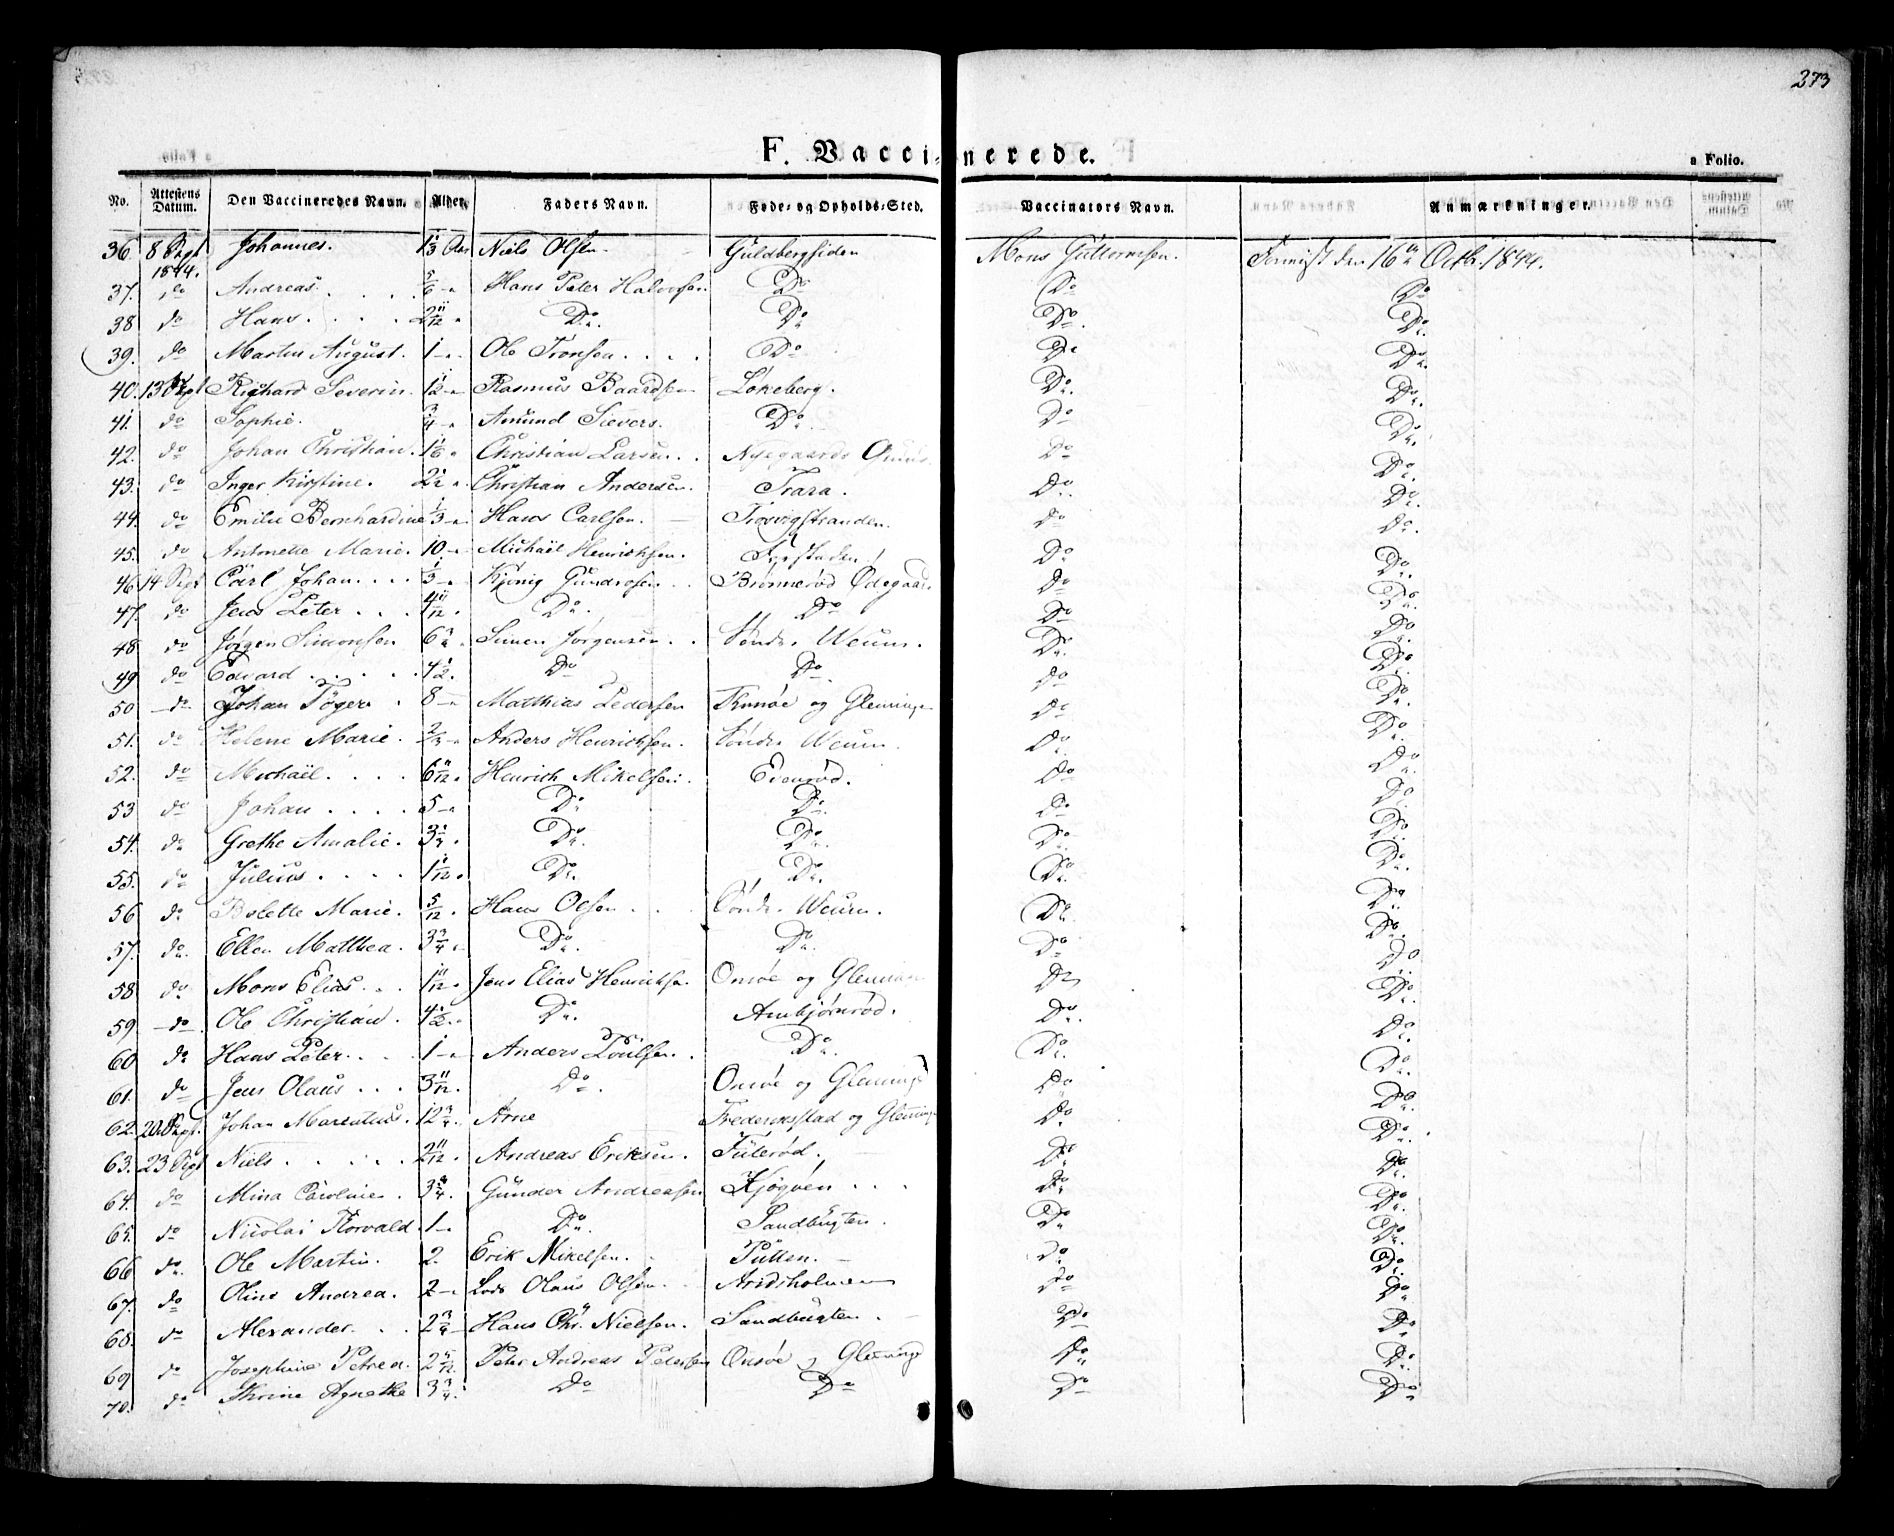 273
F. Vaccinerede.
a Folio.
No. Attestens Datum. Den Vaccineredes Navn. Alder. Faders Navn. Føde- og Opholds-Sted. Vaccinators Navn. Anmærkninger.
36. 8 Sept 1844. Johannes. 1 1/3 Niels Olsen Guldbergsiden Mons Guttormsen. den 16 Octb. 1844.
37. do Andreas. 5/6 Hans Peter Halvorsen Do Do Do
38 do Hans. 2 11/12 Do. Do Do. Do.
39. do Martin August. 1 Ole Tronsen Do Do Do.
40. 13 Sept Righard Severin 1 1/2 Rasmus Baardsen Lökeberg. Do. Do.
41. do Sophie. 3/4 Amund Sievers. Do. Do Do.
42. do Johan Christian. 1 1/6 Christian Larsen. Do Do.
43. do Inger Kirstine. 2 1/2 Christian Andersen. Trara. Do. Do.
44. do Emilie Bernhardine 1/3 Hans Carlsen. Trosvigstranden. Do Do.
45. do Antonette Marie. 10 Michael Henriksen. Do Do.
46. 14 Sept Carl Johan. 1/3 Gundrosen Ødegaard Do Do.
47. do Jens Peter 4 11/12 Do. Do Do Do.
48 do Jørgen Simonsen 6 Simen Jørgensen Søndr. Weum. Do. Do.
49 do Edvard 4 1/2. Do Do. Do Do.
50 do Johan 8 Matthias Pedersen Onsøe og Glemminge Do Do.
51. do Helene Marie. 2/3 Anders Henriksen. Søndr. Weum. Do. Do.
52. do Michaël. 6 11/12 Henrich Mikelsen. Edenrød. Do Do.
53 do Johan 5 Do. Do. Do Do.
54. do Grethe Amalie. 3 Do. Do. Do. Do.
55. do Julius 1 1/12 Do. Do. Do. Do.
56 do Bolette Marie. 5/12 Hans Olsen Søndr. Weum. Do. Do.
57. do Ellen Matthea. 3 3/4 Do. Do. Do Do.
58 do Mons Elias 1 11/12 Jens Elias Henriksen Onsøe og Glemminge Do Do.
59. do Ole Christian. 4 1/2. Do. Ambjørnrød. Do. Do.
60 do Hans Peter. 1 Anders Poulsen. Do. Do. Do.
61. do Jens Olaus 3 11/12. Do. Onsøe og Glemminge Do Do.
62. 20 Sept. Johan Marentius. 12 3/4. Arne Frederiksstad og Glemminge Do. Do.
63. 23 Sept Niels 2 11/12. Andreas Eriksen. Tulerød. Do Do.
64. do Mina Caroline. 3 3/4. Gunder Andreasen Do Do.
65. do Nicolai Torvald. 1 Do. Sandbugten. Do Do.
66 do. Ole Martin. 2. Erik Mikelsen. Putten. Do Do.
67. do Oline Andrea. 2 Olaus Olsen Do Do
68. do Alexander. 2 3/4 Hans Chr. Nielsen. Sandbugten Do Do.
69 do Josephine Petrea. 2 5/12 Peter Andreas Petersen Onsøe og Glemminge Do Do.
70. do Thrine Agnethe 3 3/4. Do Do Do Do.